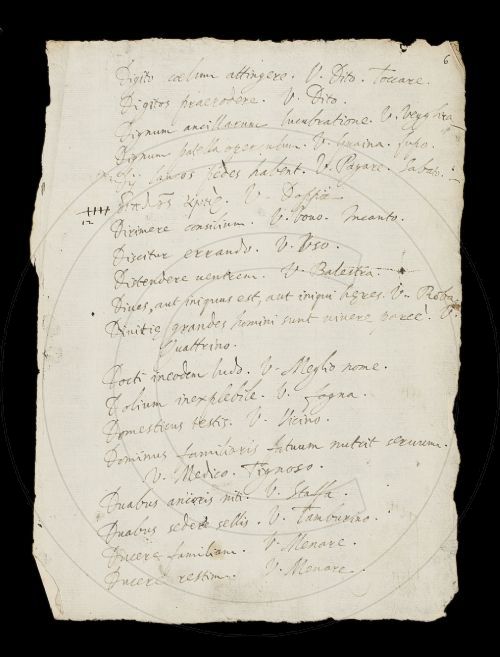 6
Digito cœlum attingere. V. Dito. Toccare.
Digitos praerodere. V. Dito.
Dignum ancillarum lucubratione. V. Vegghia
Dignum patella operculum. V.
Dij laneos pedes habent. V. Pagare. Sabato.
V. Dossia
12
Dirimere consilium. V. Vovo. Incanto.
Discitur errando. V. Uso.
Distendere ventrem. V. Balestra.
Dives, aut iniquus est, aut iniqui hęres. V. Roba.
Divitię grandes homini sunt vivere parcè. V.
Quattrino.
Docti in eodem ludo. V. Meglio nome.
Dolium inexplebile. V. Fogna.
Domesticus testis. V. Vicino.
Dominus familiaris fatuum nutrit servum.
V. Medico. Tignoso.
Duabus ancoris niti. V. Staffa.
Duabus sedere sellis. V. Tamburino.
Ducere familiam. V. Menare.
Ducere restim. V. Menare.